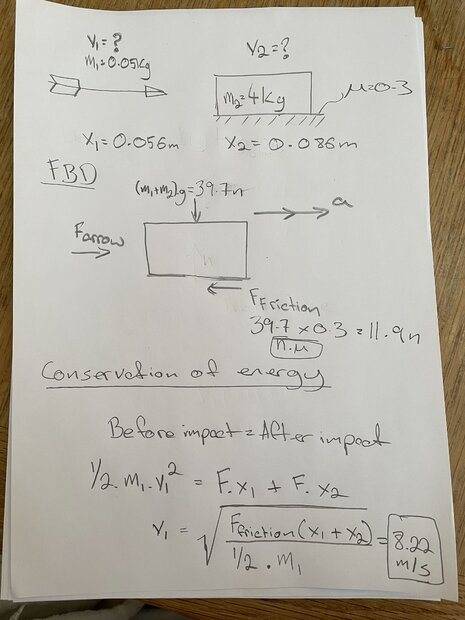 V₁ = ? V₂ = ?
m₁ = 0.05Kg
m₂ = 4Kg μ=0.3
X₁ = 0.056m X₂ = 0.086m
FBD
(m₁+m₂).g = 39.7n
a
Farrow
FFriction
39.7 x 0.3 = 11.9n
n.μ
Conservation of energy
Before impact = After impact
1/2 . m₁ . V₁² = F.x₁ + F.x₂
V₁ = √ Ffriction (x₁ + x₂) / 1/2 . m₁ = 8.22 m/s